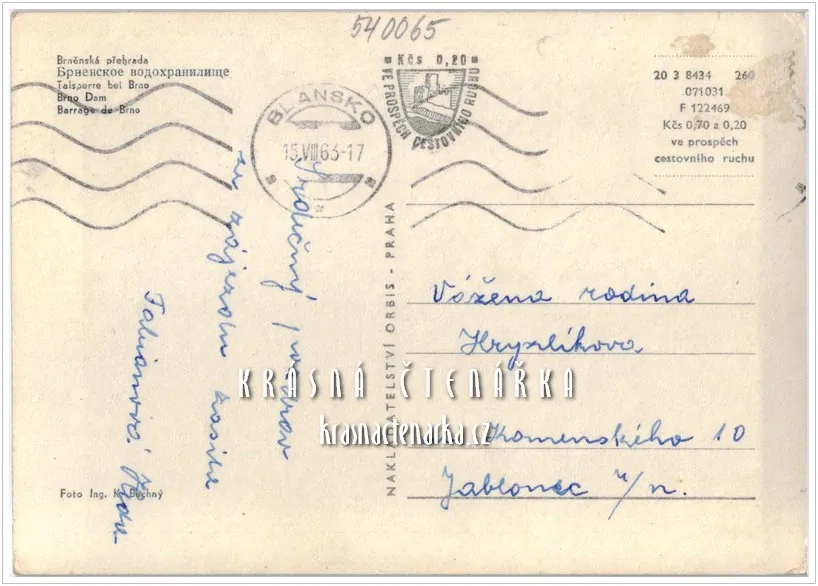 540065
Brněnská přehrada
Брненское водохранилище
Talsperre bei Brno
Brno Dam
Barrage de Brno
BLANSKO
15.VIII 63-17
Kčs 0,20
VE PROSPĚCH CESTOVNÍHO RUCHU
20 3 8434 260
071031
F 122469
Kčs 0,70 a 0,20
ve prospěch
cestovního ruchu
Srdečný pozdrav
ze zájezdu zasílá
Fabiánová
NAKLADATELSTVÍ ORBIS - PRAHA
Vážena rodina
Hryzlíkova
Komenského 10
Jablonec n/n.
KRASNÁ ČTENÁŘKA
krasnactenarka.cz
Foto Ing. K. Bochný